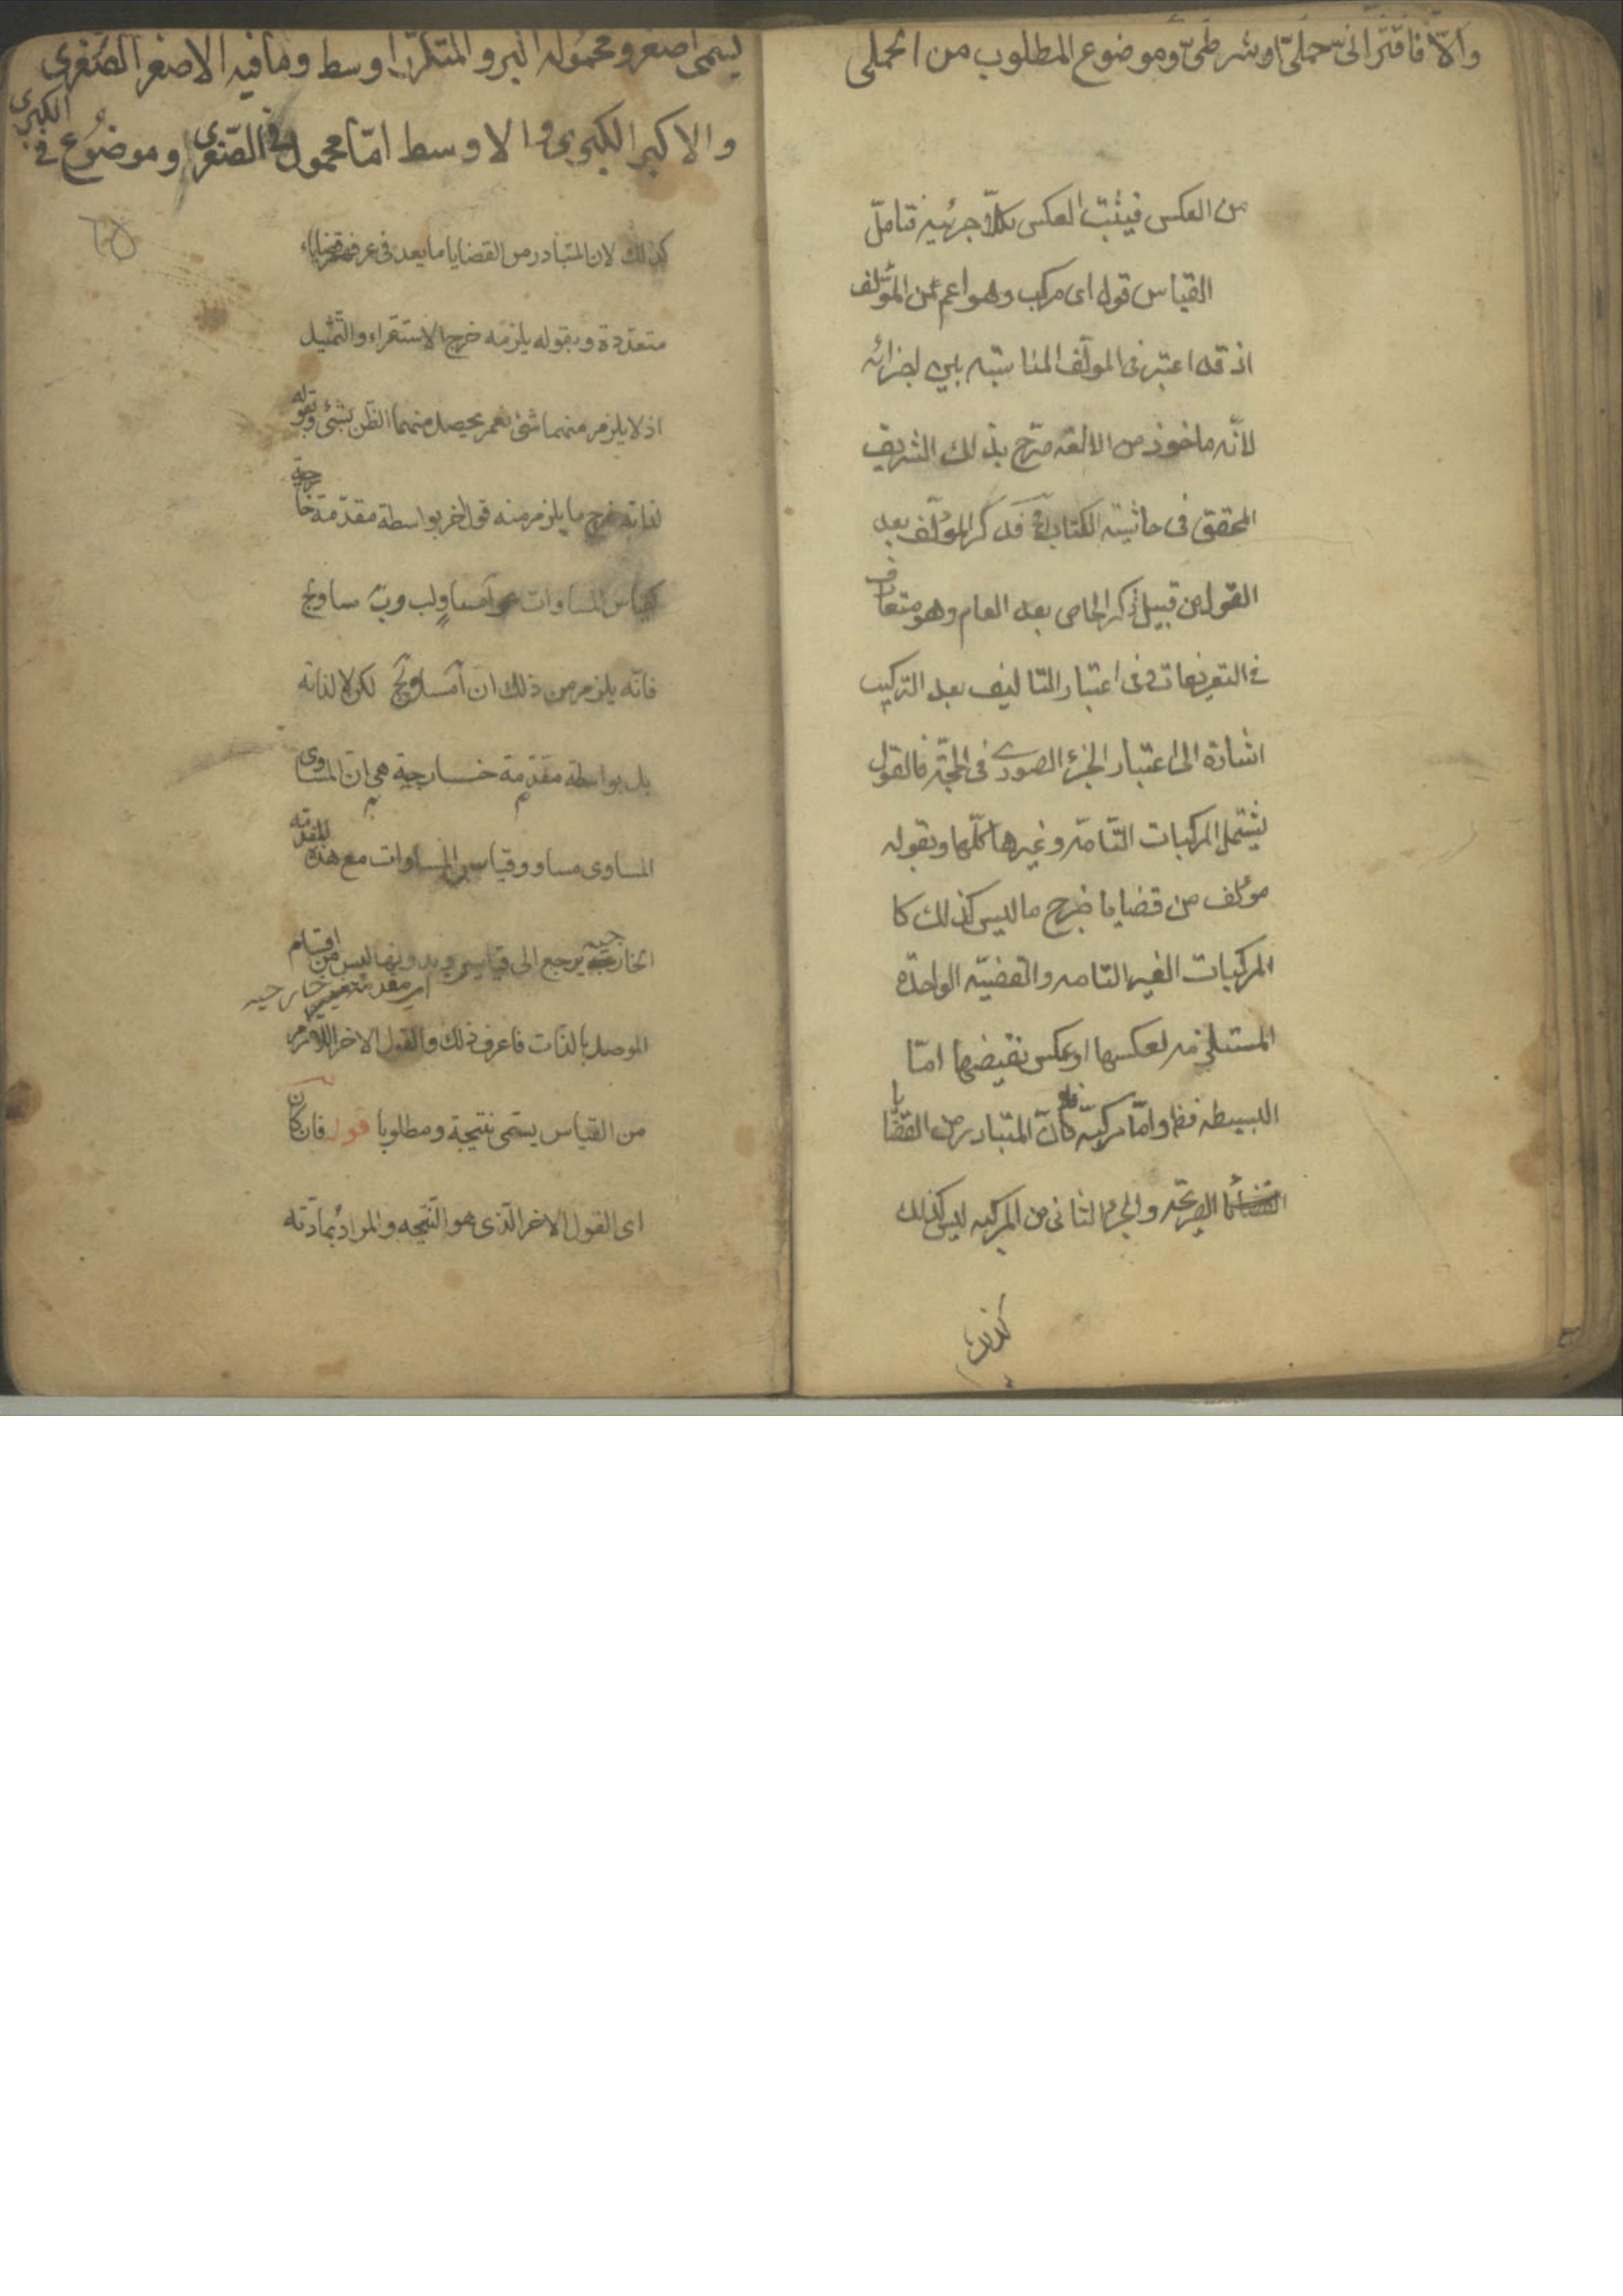 والّا فاقترانىّ حملىّ او شرطىّ وموضوع المطلوب من الحملى
من العكس فيثبت العكس كلا جزئيه فتامّل
القياس قول اى مركب وهو اعم من المؤلف
اذ قد اعتبر فى المؤلف المناسبته بين اجزائه
لانّه ماخوذ من الالفه صرّح بذلك الشريف
المحقق فى حاشيته الكتاب فذكر المؤلف بعد
القول من قبيل ذكر الخاص بعد العام وهو متعارف
فى التعريفات وفى اعتبار التاليف بعد التركيب
اشارة الى اعتبار الجزء الصورى فى الحجّة فالقول
يشتمل المركبات التّامّه وغيرها كلّها وبقوله
مؤلف من قضايا خرج ما ليس كذلك كا
المركبات الغير التامه والقضيّه الواحدة
المستلزمه لعكسها او عكس نقيضها امّا
البسيطه فظ وامّا مركبّه فلانّ المتبادر من القضايا
الصريحة والجزء الثانى من المركبه ليس كذلك
كذلك
يسمّى اصغر ومحموله اكبر والمتكرّر اوسط وما فيه الاصغر الصّغرى
والاكبر الكبرى والاوسط امّا محمول فى الصّغرى وموضوع فى الكبرى
٦٥
كذلك لان المتبادر من القضايا ما يعد فى عرفهم قضايا
متعدّدة وبقوله يلزمه خرج الاستقراء والتّمثيل
اذ لا يلزم منهما شئ نعم يحصل منهما الظن بشئ وبقوله
لذاته خرج ما يلزم منه قول اخر بواسطة مقدّمة خارجية
كقياس المساوات نحو آ مساو لب وب مساو لج
فانّه يلزم من ذلك ان آ مساو لج لكن لا لذاته
بل بواسطة مقدّمة خارجية هى ان المساوى
المساوى مساو وقياس المساوات مع هذه المقدمه
الخارجيه يرجع الى قياسين وبدونها ليس من اقسام
اى مقدمة خارجيه
الموصل بالذات فاعرف ذلك والقول الاخر اللازم
من القياس يسمّى نتيجة ومطلوبا قوله فان كان
اى القول الاخر الّذى هو النتيجه والمراد بمادّته